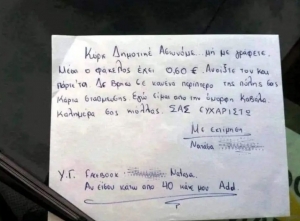 Κύριε Δημοτικέ Αστυνόμε μη με γράψετε.
Μέσα ο φάκελος έχει 0,60 €. Ανοίξτε τον και
πάρτε τα. Δε βρήκα σε κανένα περίπτερο της πόλης σας
κάρτα στάθμευσης. Εγώ είμαι από την όμορφη Καβάλα
Καλημέρα σας κιόλας. ΣΑΣ ΕΥΧΑΡΙΣΤΩ
Με εκτίμηση
Νατάσα
Υ.Γ. Facebook: Natasa
Αν είσαι κάτω από 40 κάνε μου Add